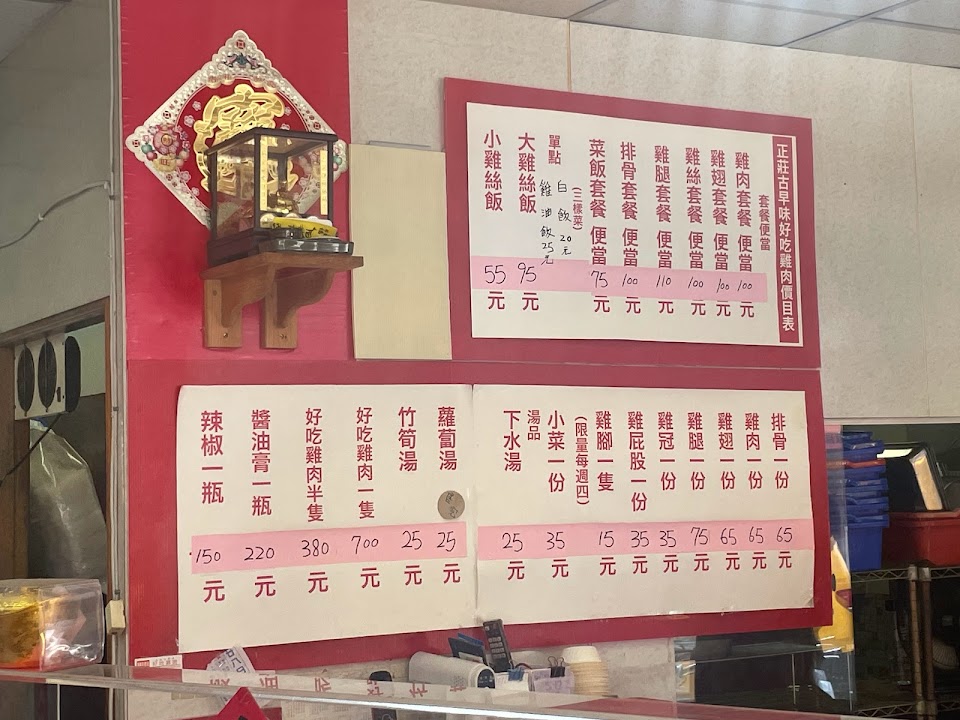 正莊古早味好吃雞肉價目表
套餐便當
雞肉套餐 便當 100 元
雞翅套餐 便當 100 元
雞絲套餐 便當 100 元
雞腿套餐 便當 110 元
排骨套餐 便當 100 元
菜飯套餐 便當 75 元
(三樣菜)
單點
白飯 20元
雞油飯 25元
大雞絲飯 95 元
小雞絲飯 55 元
排骨一份 65 元
雞肉一份 65 元
雞翅一份 65 元
雞腿一份 75 元
雞冠一份 35 元
雞屁股一份 35 元
雞腳一隻 15 元
(限量每週四)
小菜一份 35 元
湯品
下水湯 25 元
蘿蔔湯 25 元
竹筍湯 25 元
好吃雞肉一隻 700 元
好吃雞肉半隻 380 元
醬油膏一瓶 220 元
辣椒一瓶 150 元